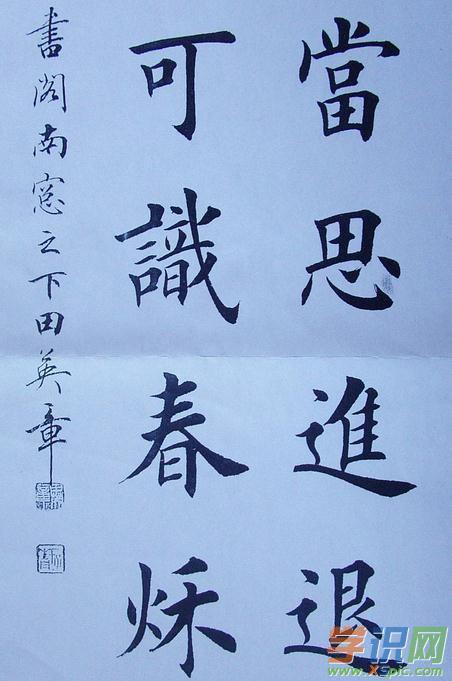 當思進退
可識春秌
書閣南窓之下田英章
学识网
XSpic.com